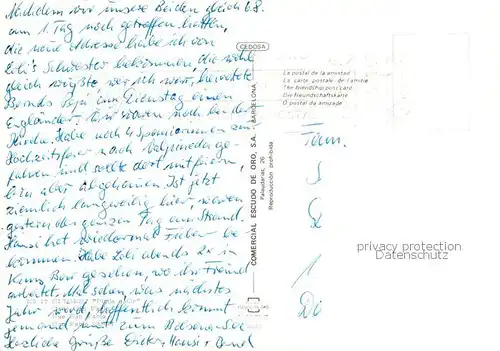 Nachdem wir unsere Beiden gleich
am 1 Tag noch getroffen hatten,
die neue Adresse habe ich von
Loli's Schwester bekommen, die wohl
gleich wußte wer ich war, heiratete
am Dienstag einen
Engländer. Wir waren noch bei der
Kirche. Habe noch 4 Spanierinnen zur
Hochzeitsfeier nach ge-
fahren und sollte dort mitfeiern,
bin aber abgehauen. Ist jetzt
ziemlich langweilig hier, waren
gestern den ganzen Tag am Strand.
Hansi hat wiedermal Fieber be-
kommen. Habe Loli abends 2x in
Bar gesehen, wo ihr Freund
arbeitet. Mal sehen was nächstes
Jahr wird, hoffentlich kommt
jemand mit zum
Herzliche Grüße Hansi + Bernd
CEDOSA
COMERCIAL ESCUDO DE ORO, S.A. - BARCELONA
Palaudarias, 26
Reproducción prohibida
La postal de la amistad
La carte postale de l'amitié
The friendship postcard
Die Freundschaftskarte
O postal da amizade
Fam.
1
privacy protection
Datenschutz